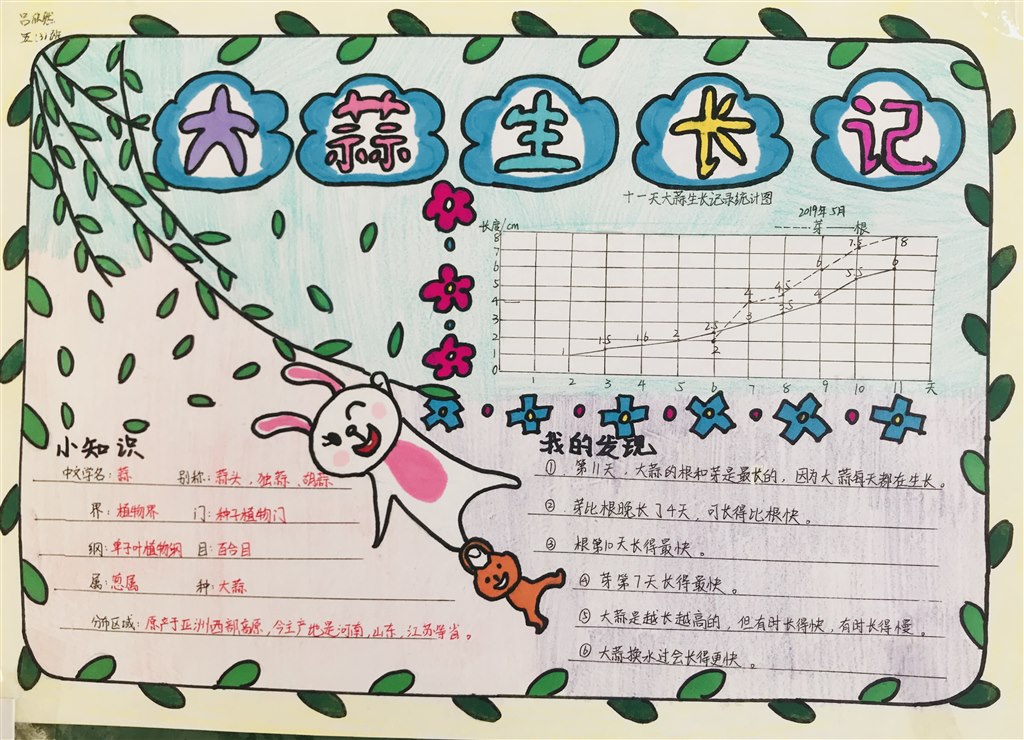 吕欣然
五(3)班
大蒜生长记
十一天大蒜生长记录统计图
2019年5月
长度/cm
芽 根
8
7
6
5
4
3
2
1
0
1 1.5 1.6 2 2.5 3 3.5 4 5.5 6
2 4 4.5 6 7.5 8
1 2 3 4 5 6 7 8 9 10 11 天
小知识
中文学名：蒜 别称：蒜头、独蒜、胡蒜
界：植物界 门：种子植物门
纲：单子叶植物纲 目：百合目
属：葱属 种：大蒜
分布区域：原产于亚洲西部高原，今主产地是河南，山东，江苏等省。
我的发现
① 第11天，大蒜的根和芽是最长的，因为大蒜每天都在生长。
② 芽比根晚长了4天，可长得比根快。
③ 根第10天长得最快。
④ 芽第7天长得最快。
⑤ 大蒜是越长越高的，但有时长得快，有时长得慢。
⑥ 大蒜换水过会长得更快。